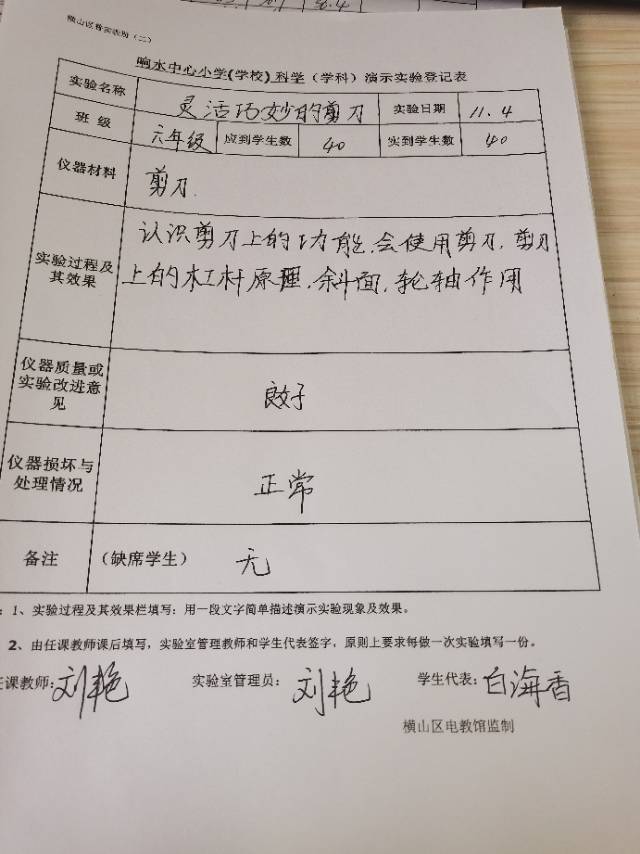 横山区教实表册（二）
响水中心小学(学校)科学（学科）演示实验登记表
实验名称 灵活巧妙的剪刀 实验日期 11.4
班 级 六年级 应到学生数 40 实到学生数 40
仪器材料 剪刀.
实验过程及其效果
认识剪刀上的功能.会使用剪刀.剪刀
上的杠杆原理.斜面.轮轴作用
仪器质量或
实验改进意
见
良好
仪器损坏与
处理情况
正常
备注 （缺席学生） 无
：1、实验过程及其效果栏填写：用一段文字简单描述演示实验现象及效果。
2、由任课教师课后填写，实验室管理教师和学生代表签字，原则上要求每做一次实验填写一份。
任课教师：刘艳 实验室管理员：刘艳 学生代表：白海香
横山区电教馆监制